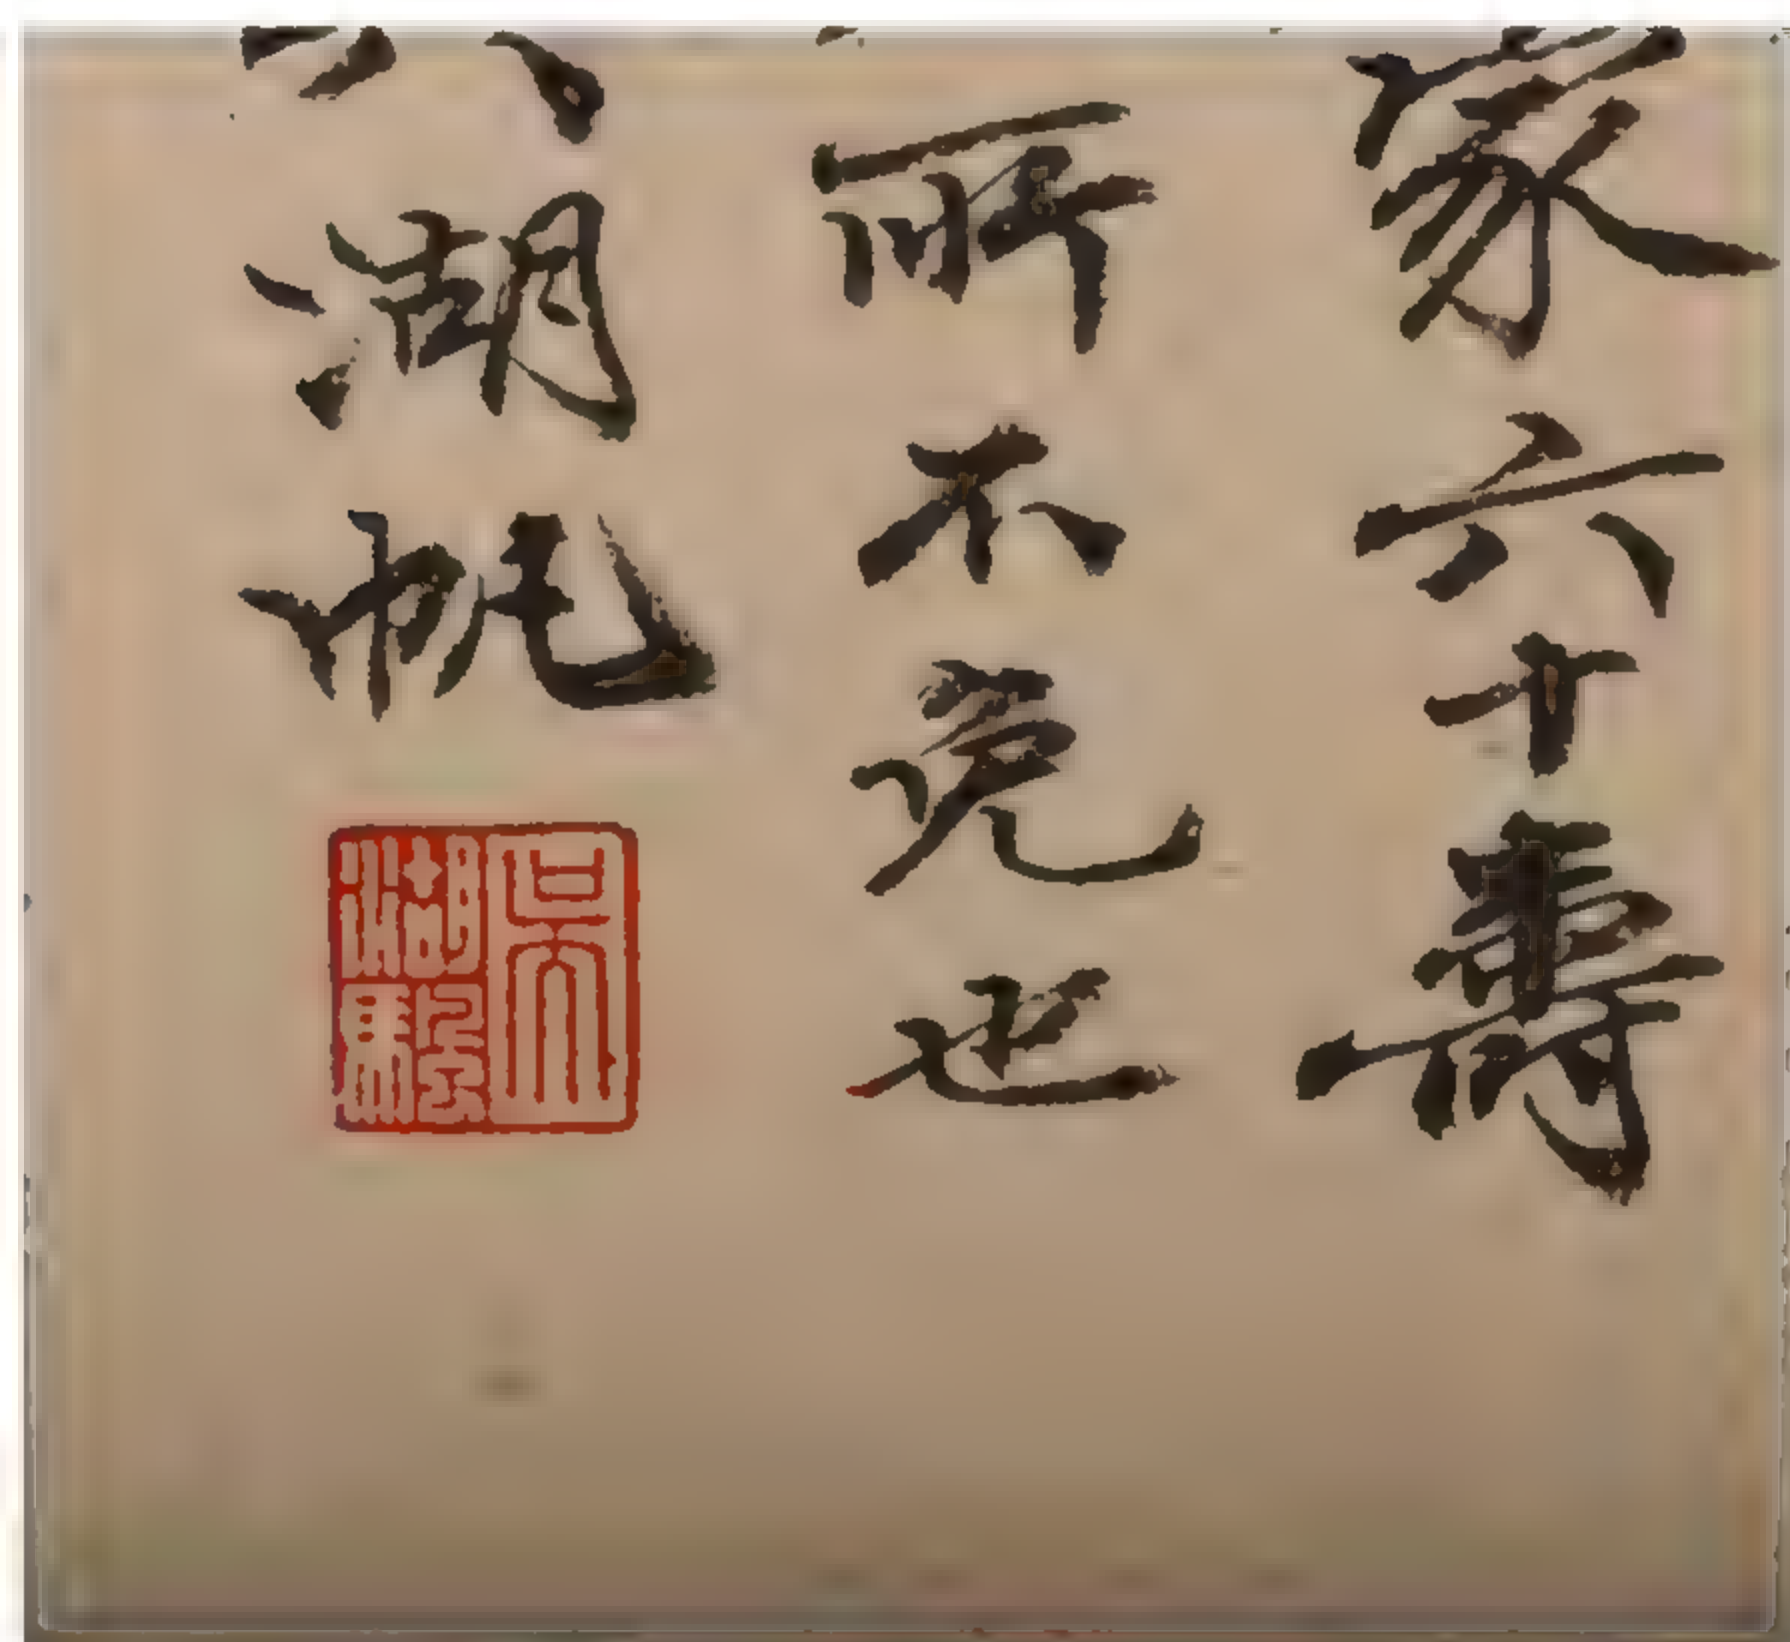 家六十壽
所不免也
湖帆
吳湖颿